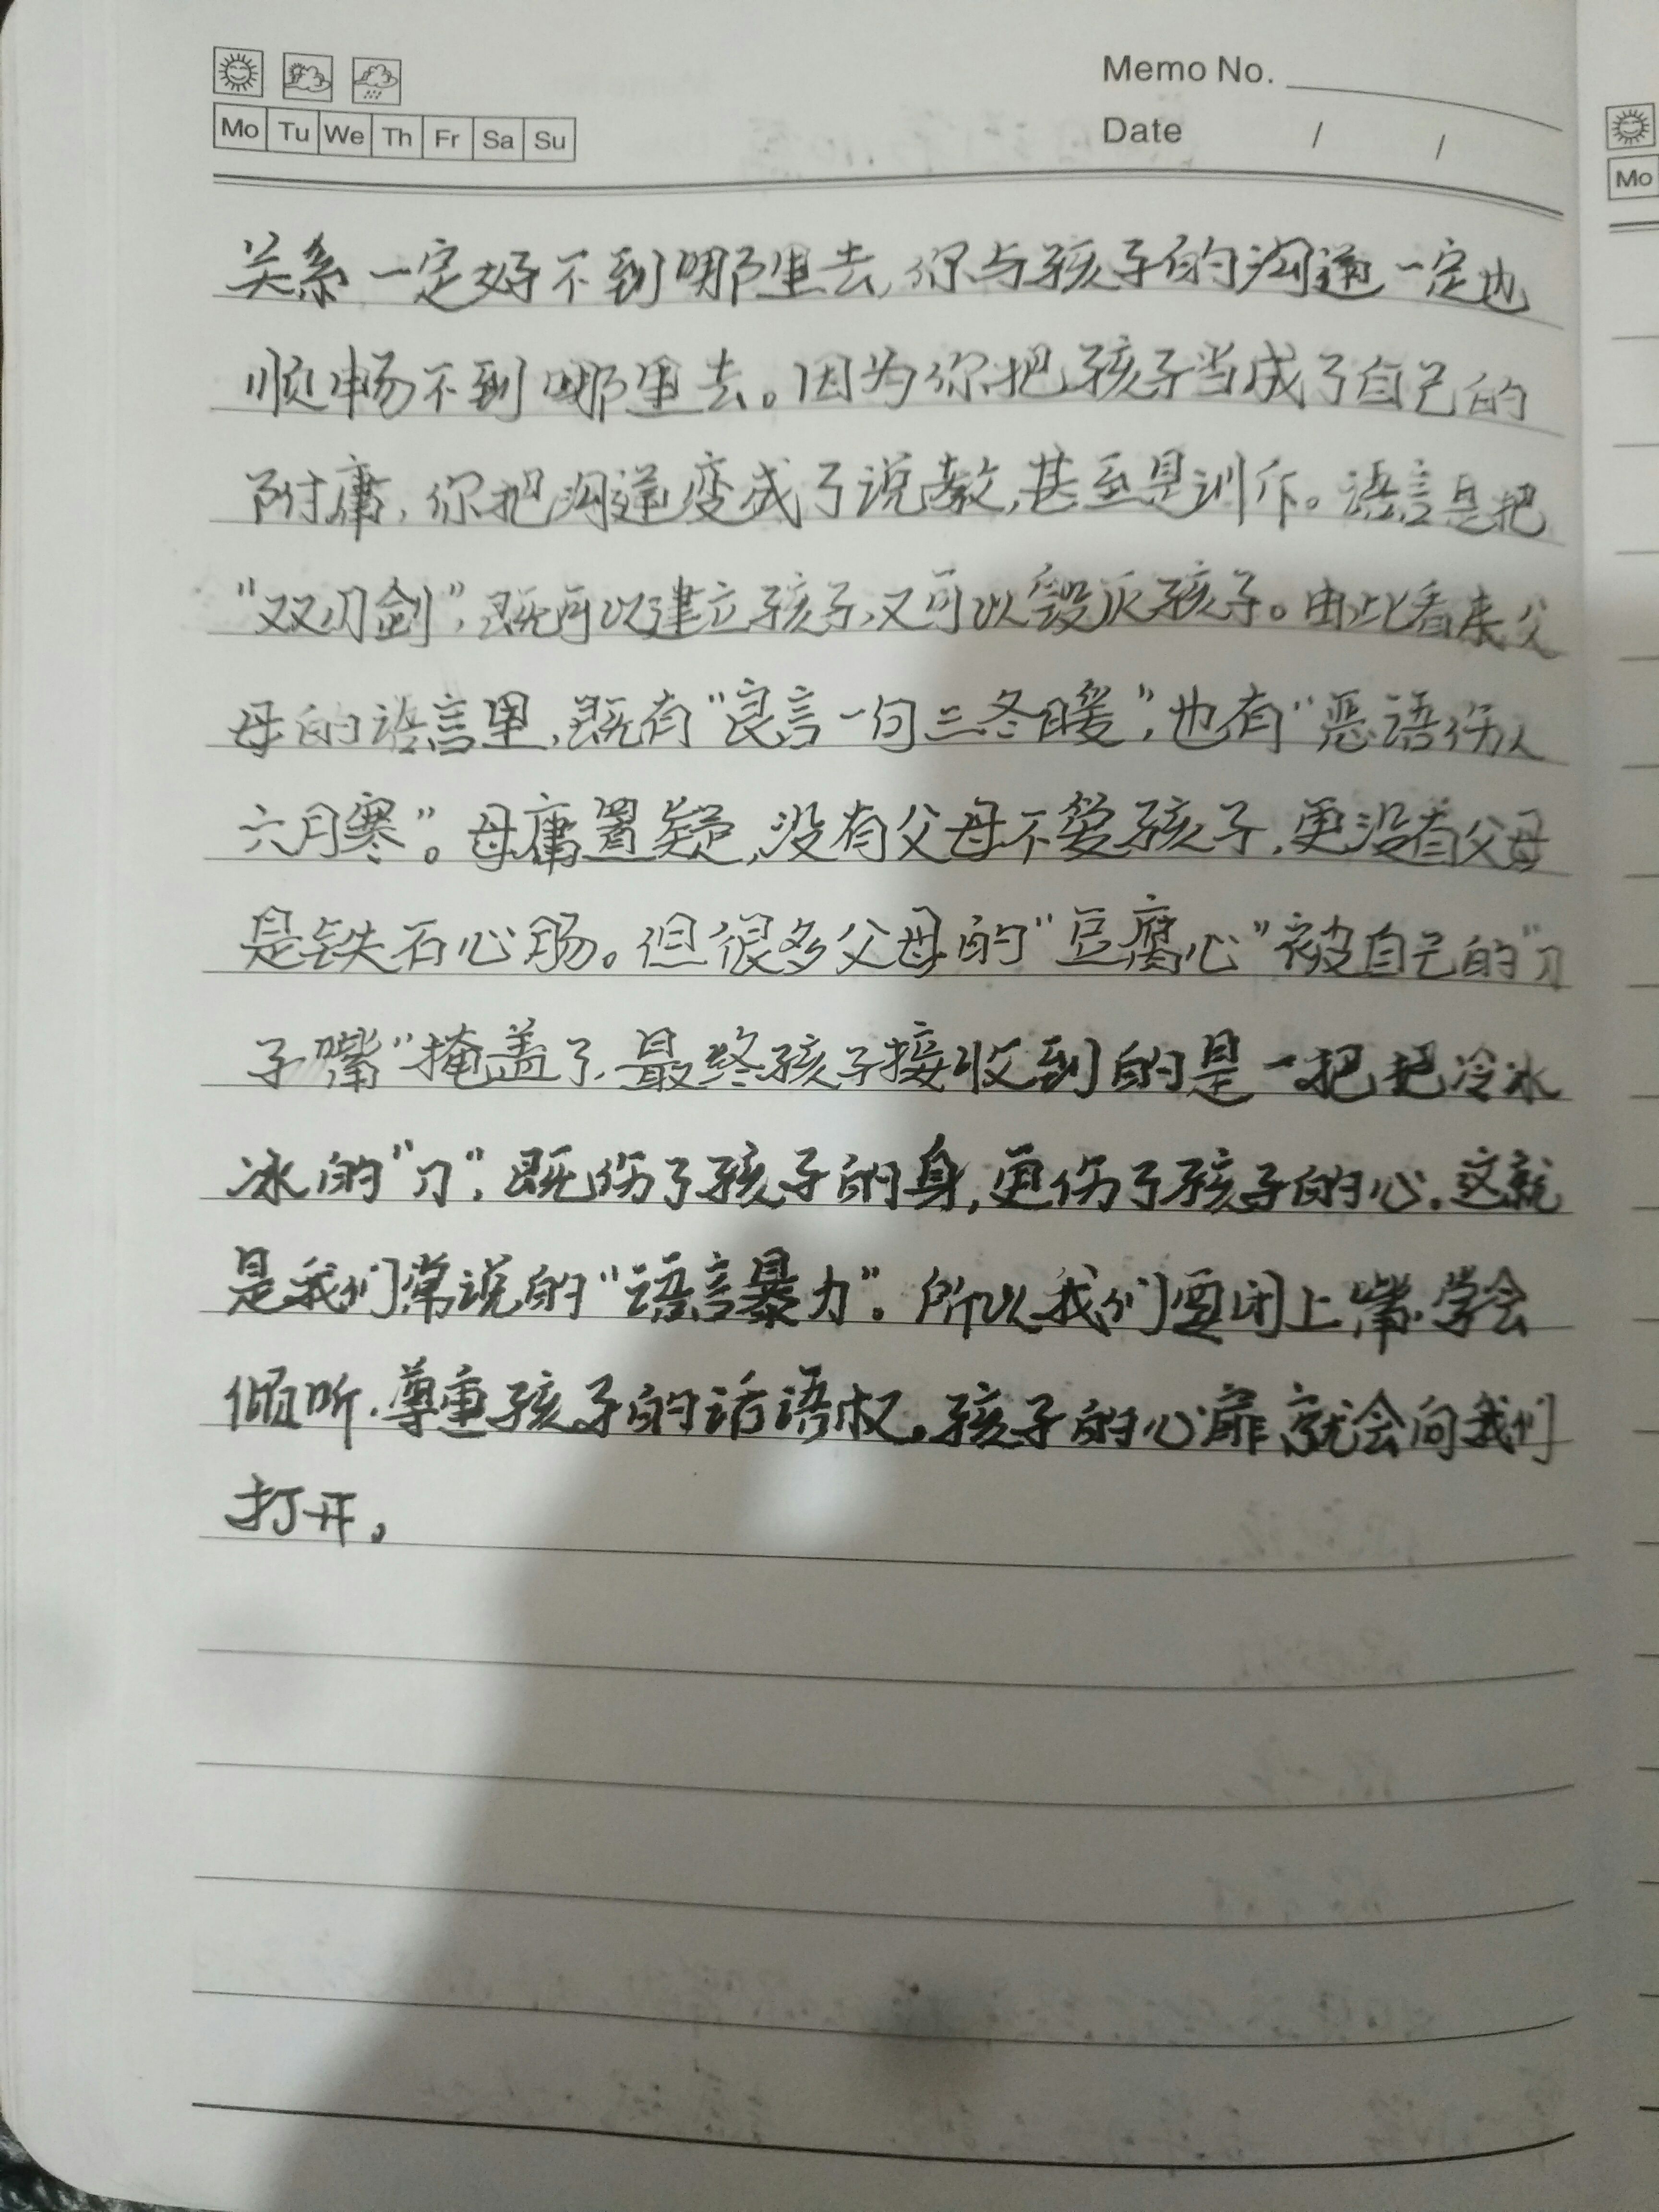 Memo No.
Mo Tu We Th Fr Sa Su
Date / /
Mo
关系一定好不到哪里去,你与孩子的沟通一定也
顺畅不到哪里去。因为你把孩子当成了自己的
附庸,你把沟通变成了说教,甚至是训斥。语言是把
“双刃剑”,既可以建立孩子,又可以毁灭孩子。由此看来父
母的语言里,既有“良言一句三冬暖”,也有“恶语伤人
六月寒”。毋庸置疑,没有父母不爱孩子,更没有父母
是铁石心肠。但很多父母的“豆腐心”被自己的“刀
子嘴”掩盖了,最终孩子接收到的是一把把冷冰
冰的“刀”,既伤了孩子的身,更伤了孩子的心。这就
是我们常说的“语言暴力”。所以我们要闭上嘴,学会
倾听,尊重孩子的话语权,孩子的心扉就会向我们
打开。